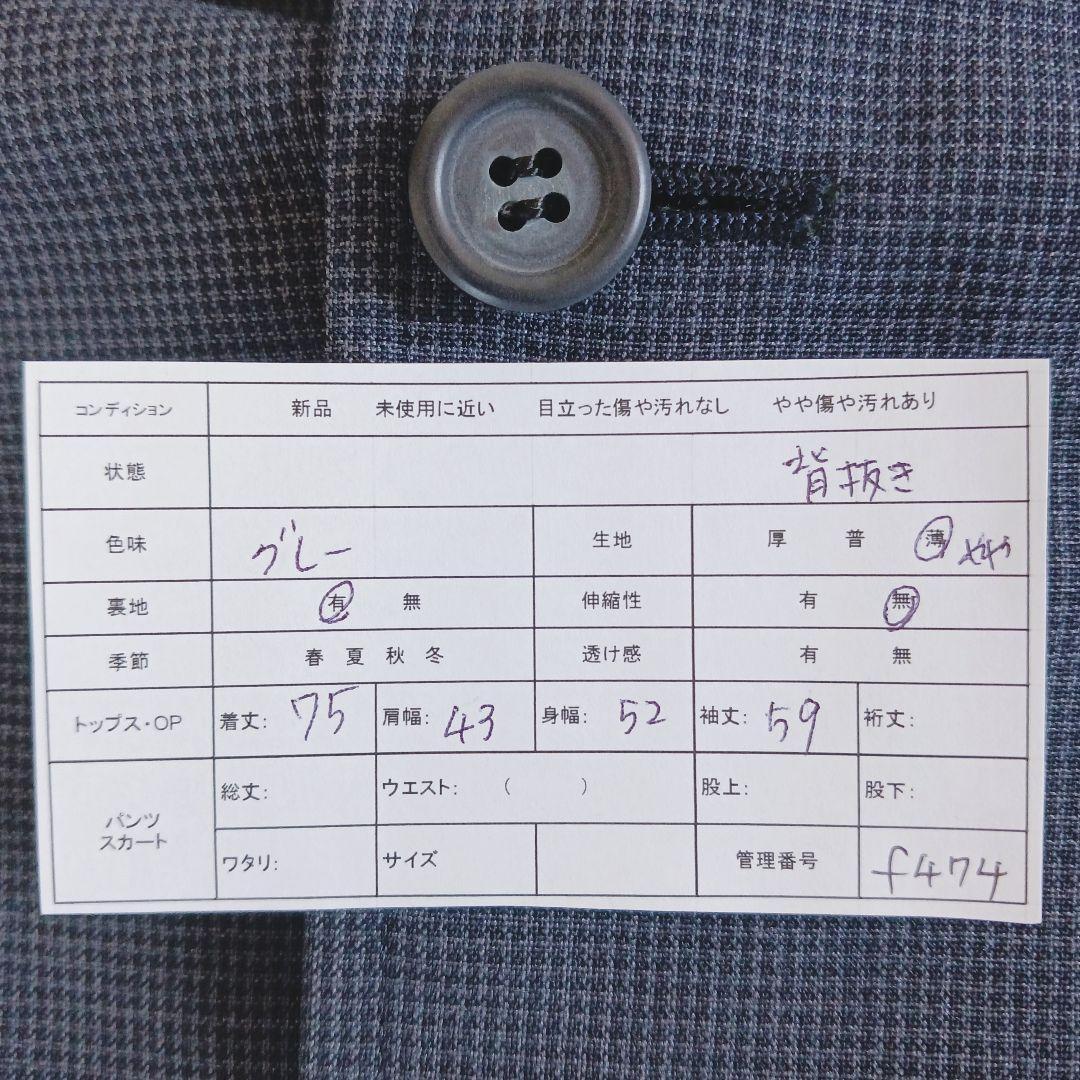 コンディション 新品 未使用に近い 目立った傷や汚れなし やや傷や汚れあり
状態 背抜き
色味 グレー 生地 厚 普 薄 やや
裏地 有 無 伸縮性 有 無
季節 春 夏 秋 冬 透け感 有 無
トップス・OP 着丈: 75 肩幅: 43 身幅: 52 袖丈: 59 裄丈:
パンツ スカート 総丈: ウエスト: ( ) 股上: 股下:
ワタリ: サイズ 管理番号 f474